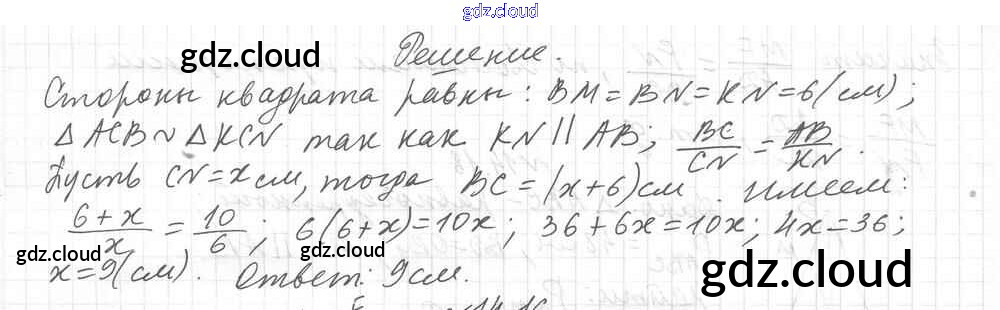 gdz.cloud
gdz.cloud Решение. gdz.cloud
Стороны квадрата равны: BM = BN = KN = 6 (см);
△ ACB ~ △ KCN так как KN || AB; BC/CN = AB/KN.
Пусть CN = x см, тогда BC = (x+6) см. имеем:
6+x/x = 10/6; 6(6+x) = 10x; 36+6x = 10x; 4x = 36;
gdz.cloud gdz.cloud gdz.cloud
x = 9 (см). Ответ: 9 см.
gdz.cloud